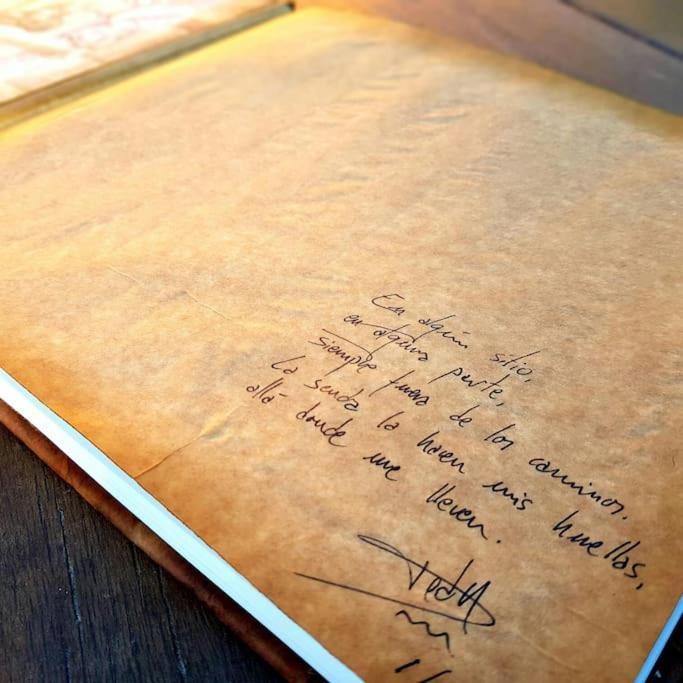 En algún sitio,
en alguna parte,
siempre fuera de los caminos.
La senda la hacen mis huellas,
allá donde me lleven.